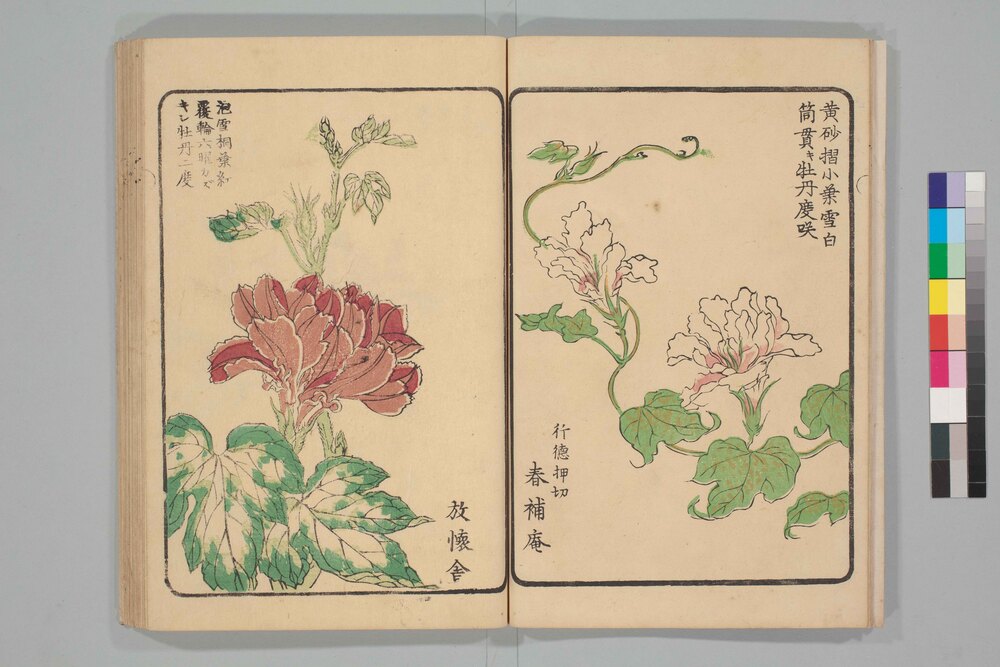 黄砂摺小葉雪白
筒貫キ牡丹度咲
行徳押切
春補庵
泡雪桐葉紅
覆輪六曜カズ
キレ牡丹二度
放懐舎